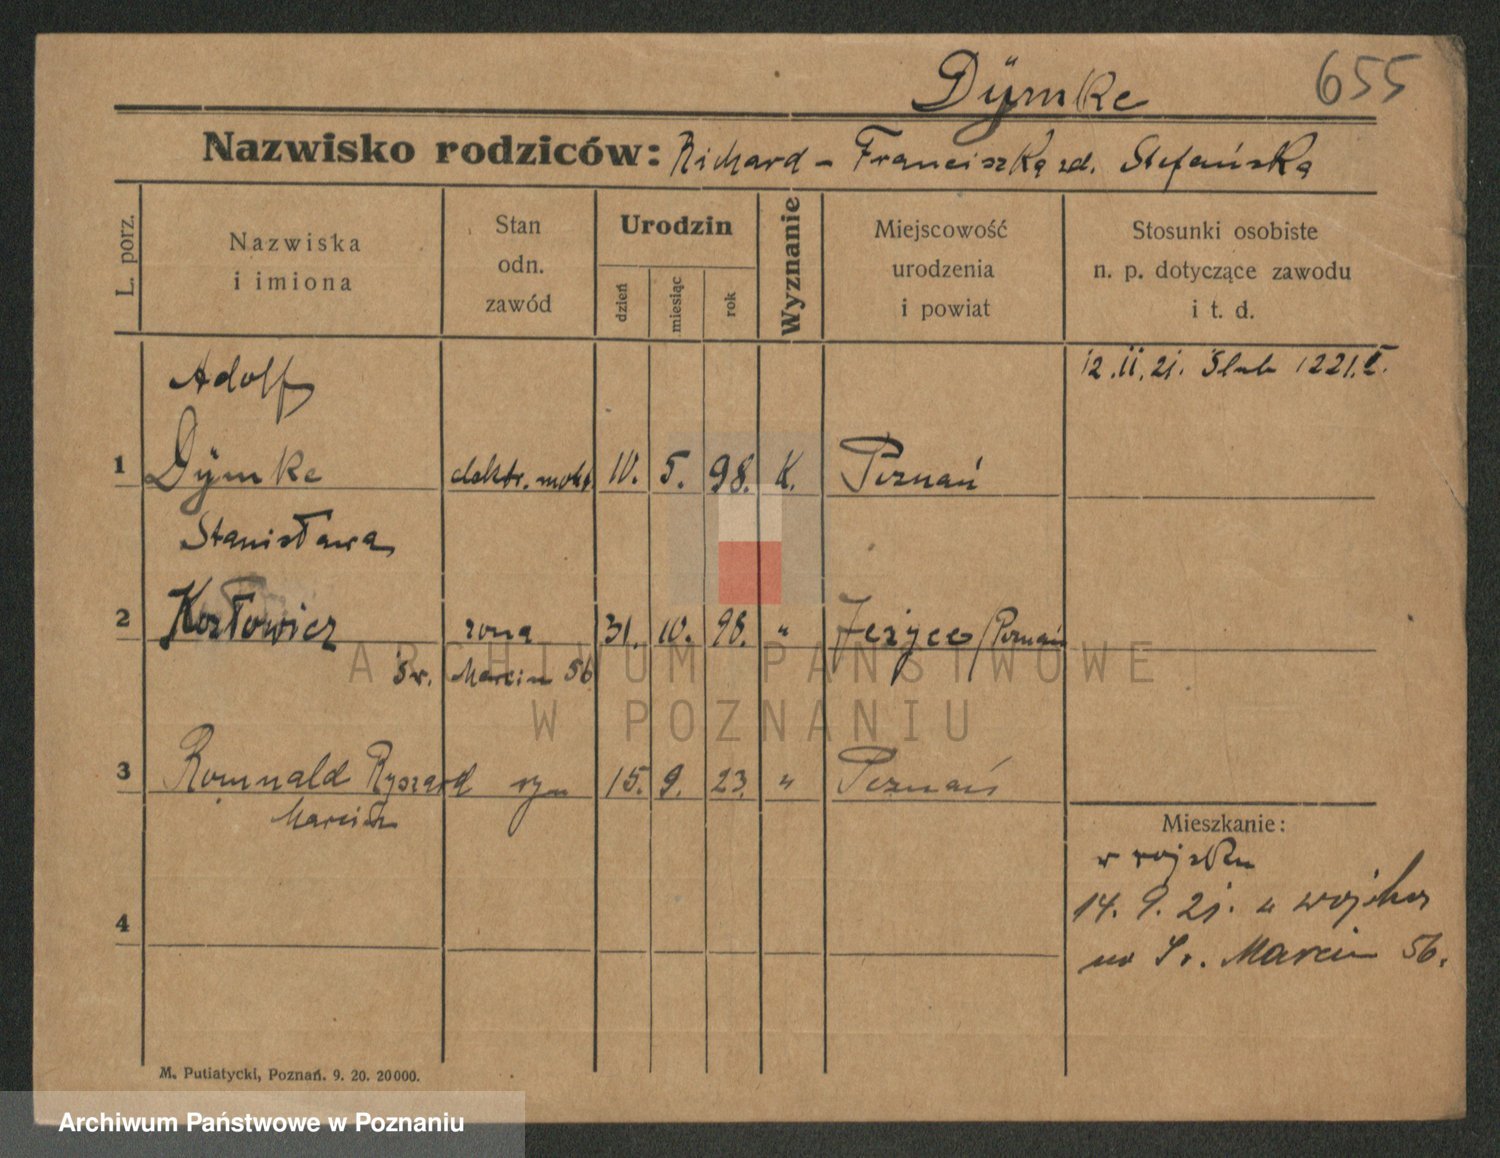 Dÿmke 655
Nazwisko rodziców: Richard - Franciszka zd. Stefańska
L. porz.
Nazwiska i imiona
Stan odn. zawód
Urodzin
dzień
miesiąc
rok
Wyznanie
Miejscowość urodzenia i powiat
Stosunki osobiste n. p. dotyczące zawodu i t. d.
Adolf 12.II.21. Ślub 1221.
1 Dÿmke elektr. mont. 10. 5. 98. K. Poznań
Stanisława
2 Kozłowicz żona 31. 10. 98. " Jeżyce/Poznań
Św. Marcin 56
3 Romuald Ryszard syn 15. 9. 23. " Poznań
Marcin
Mieszkanie:
w wojsku
14. 9. 21. z wojska
na Św. Marcin 56.
4
M. Putiatycki, Poznań. 9. 20. 20000.
ARCHIWUM PAŃSTWOWE
W POZNANIU
Archiwum Państwowe w Poznaniu